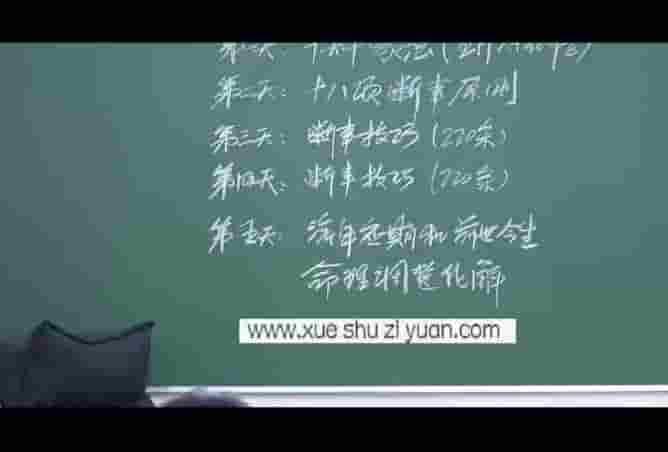 第二天：十八项断事原则
第三天：断事技巧（270条）
第四天：断事技巧（720条）
第五天：流年应期和前世今生
命理调整化解
www.xue shu zi yuan.com